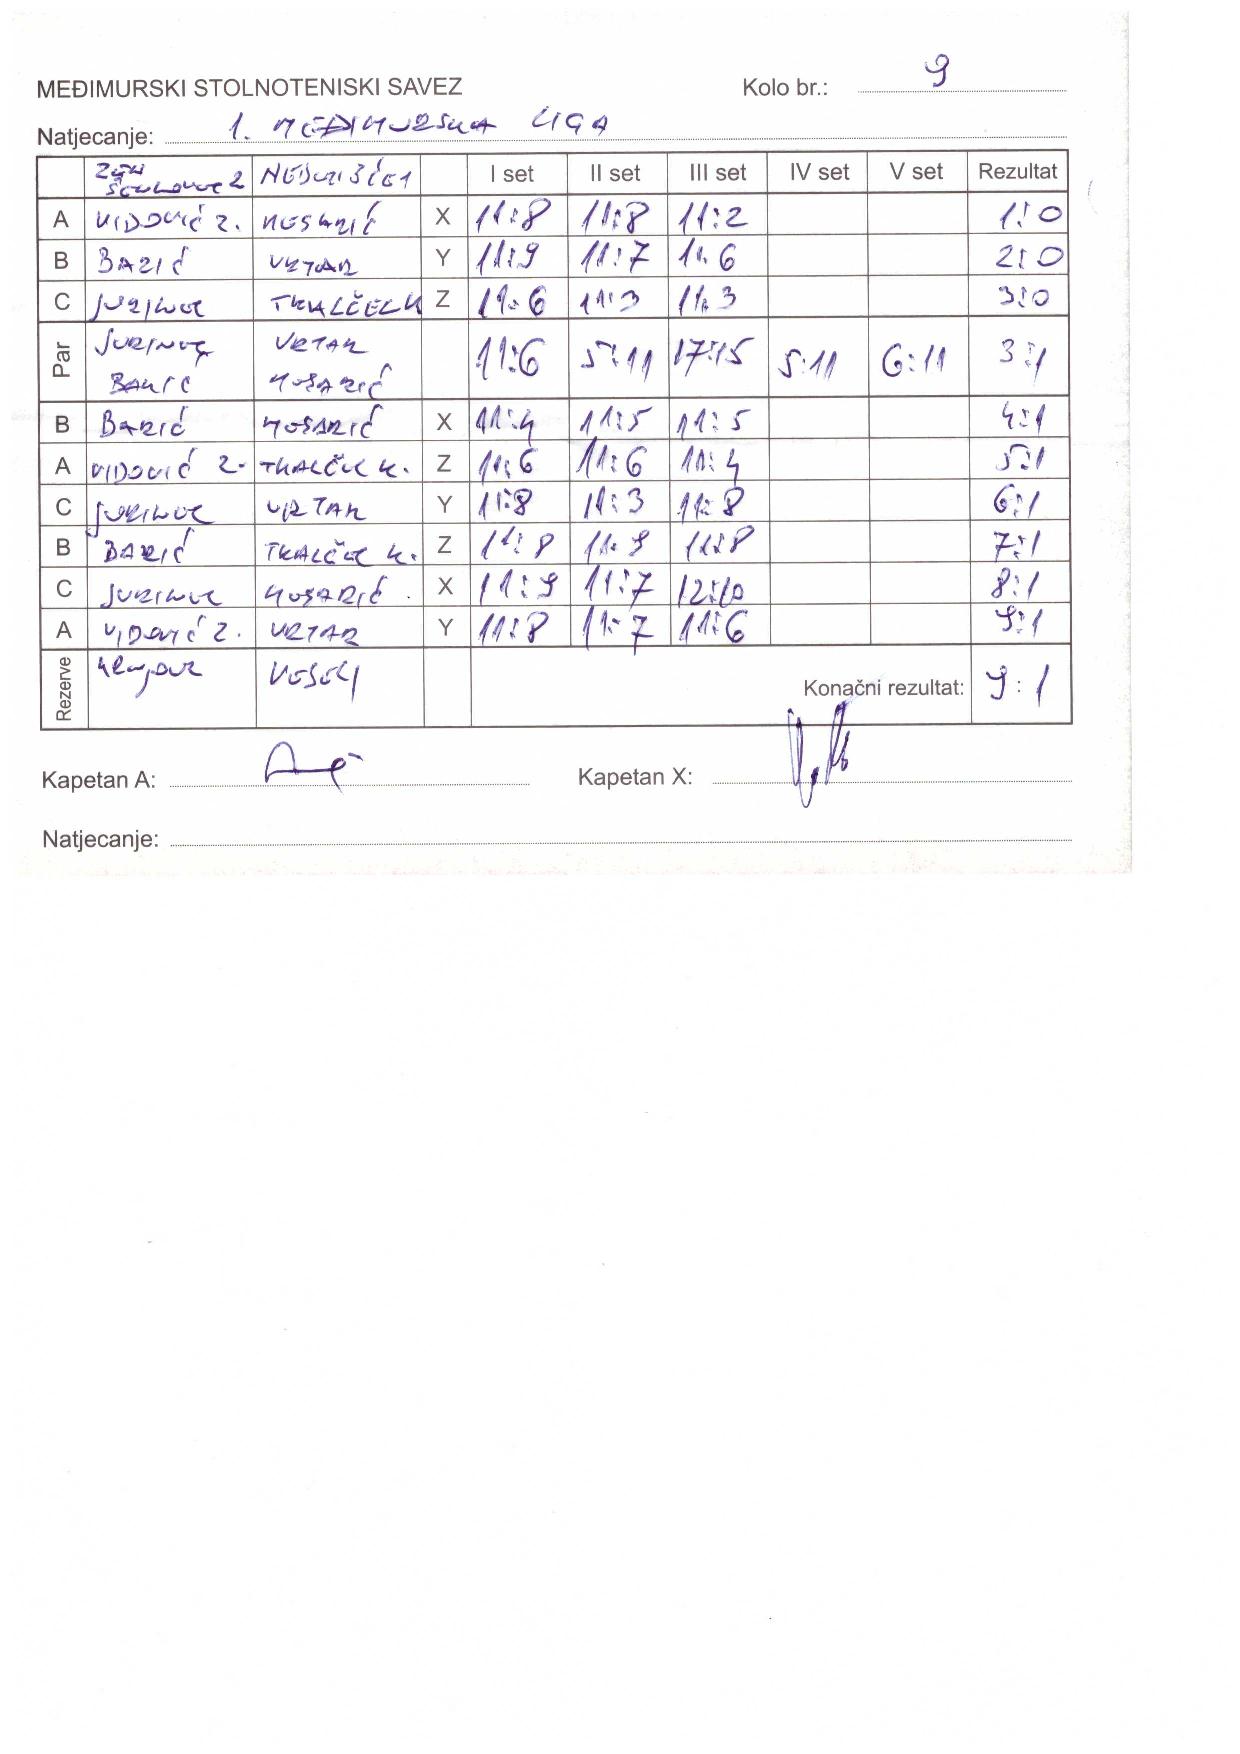 MEĐIMURSKI STOLNOTENISKI SAVEZ Kolo br.: 9
Natjecanje: 1. MEĐIMURSKA LIGA
2 NEDELIŠĆE 1 I set II set III set IV set V set Rezultat
A VIDOVIĆ Z. MOSARIĆ X 11:8 11:8 11:2 1:0
B BARIĆ VRTAR Y 11:9 11:7 11:6 2:0
C JURINEC TKALČEC K Z 11:6 11:3 11:3 3:0
Par JURINEC VRTAR 11:6 5:11 17:15 5:11 6:11 3:1
BARIĆ MOSARIĆ
B BARIĆ MOSARIĆ X 11:4 11:5 11:5 4:1
A VIDOVIĆ Z. TKALČEC K. Z 11:6 11:6 11:4 5:1
C JURINEC VRTAR Y 11:8 11:3 11:8 6:1
B BARIĆ TKALČEC K. Z 11:8 11:9 11:8 7:1
C JURINEC MOSARIĆ X 11:9 11:7 12:10 8:1
A VIDOVIĆ Z. VRTAR Y 11:8 11:7 11:6 9:1
Rezerve VESELJ Konačni rezultat: 9:1
Kapetan A: Kapetan X:
Natjecanje: